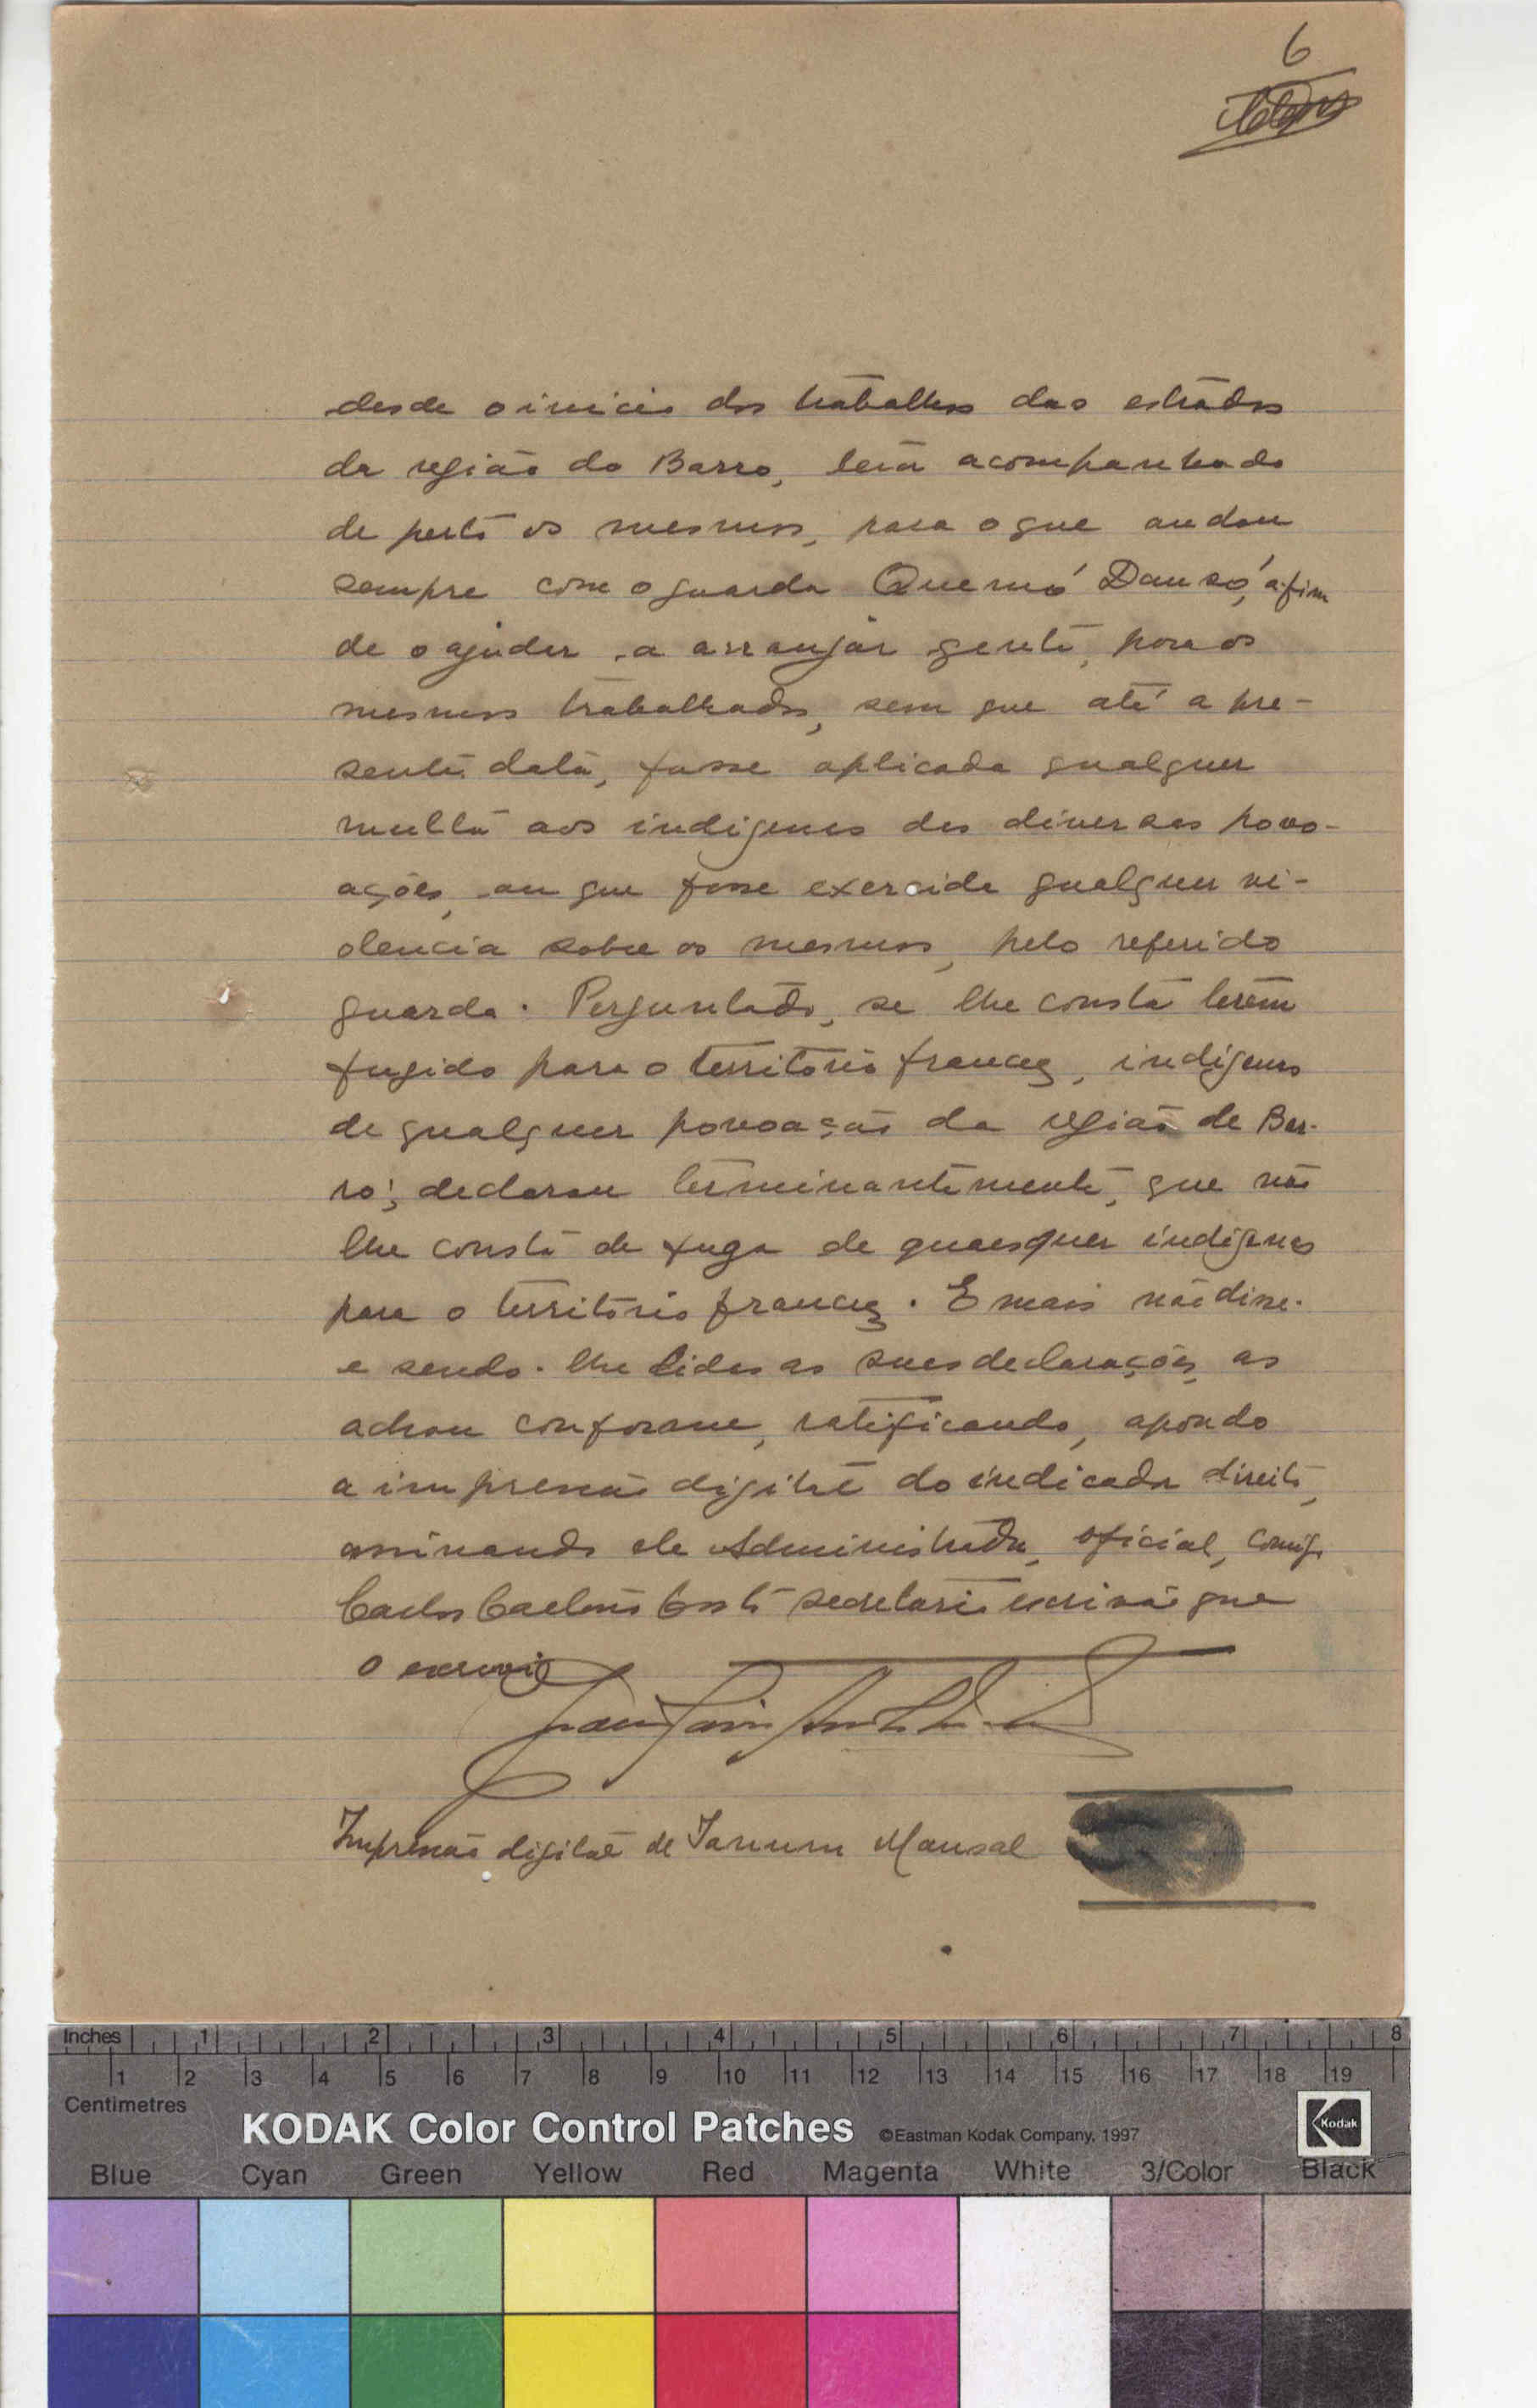 6
desde o inicio dos trabalhos das estradas
da região do Barro, tem acompanhado
de perto os mesmos, para o que andou
sempre com o guarda Quemó Dansó, a fim
de o ajudar, a arranjar gente, para os
mesmos trabalhados, sem que até a pre-
sente data, fosse aplicada qualquer
multa aos indigenas das diversas povo-
ações, ou que fosse exercida qualquer vi-
olencia sobre os mesmos, pelo referido
guarda. Perguntado, se lhe consta terem
fugido para o territorio francez, indigenas
de qualquer povoação da região de Bar-
ro; declarou terminantemente, que não
lhe consta de fuga de quaesquer indigenas
para o territorio francez. E mais não disse.
e sendo-lhe lidas as suas declarações, as
achou conforme, ratificando, apondo
a impressão digital do indicador direito,
assinando ele Administrador, oficial, comigo
Carlos Caetano Costa secretario escrivão que
o escrevi
Impressão digital de Mansal
Inches 1 2 3 4 5 6 7 8
1 2 3 4 5 6 7 8 9 10 11 12 13 14 15 16 17 18 19
Centimetres
KODAK Color Control Patches ©Eastman Kodak Company, 1997 Kodak
Blue Cyan Green Yellow Red Magenta White 3/Color Black